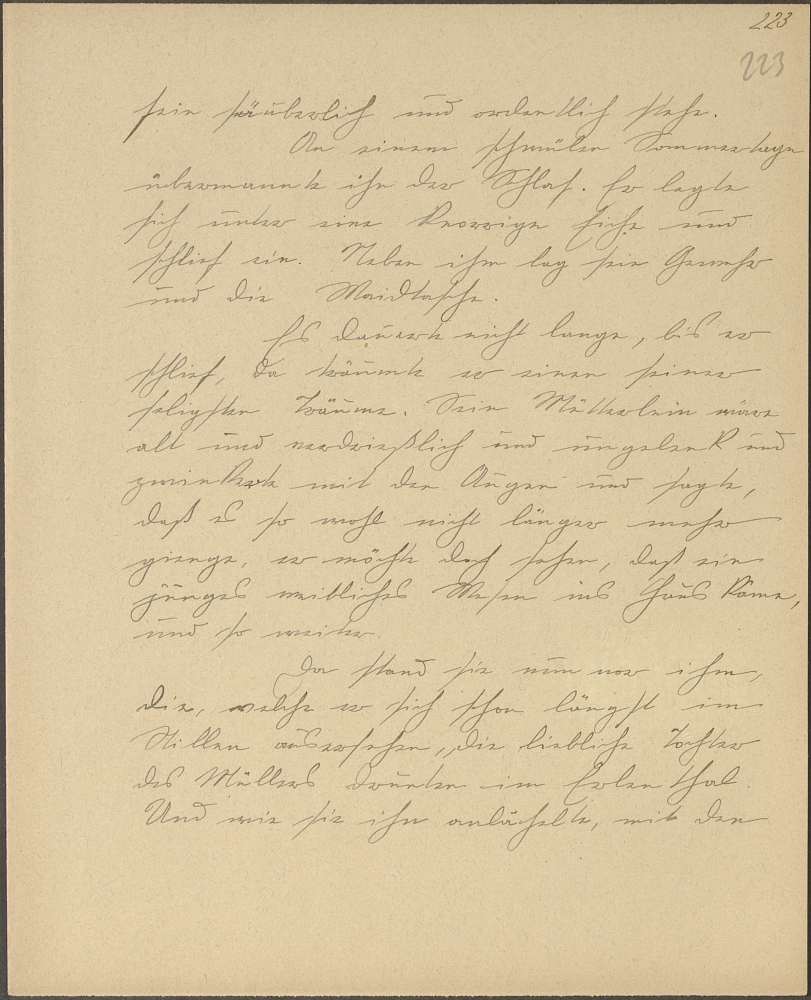 223
223
sein säuberlich und ordentlich stehe.
An einem schwülen Sommertage
übermannte ihn der Schlaf. Er legte
sich unter eine knorrige Eiche und
schlief ein. Neben ihm lag sein Gewehr
und die Waidtasche.
Es dauerte nicht lange, bis er
schlief, da träumte er einen seiner
seligsten Träume. Sein Mütterlein wäre
alt und verdrießlich und ungelenk und
zwinkerte mit den Augen und sagte,
daß es so wohl nicht länger mehr
gienge, er möchte doch sehen, daß ein
junges weibliches Wesen ins Haus käme,
und so weiter.
Da stand sie nun vor ihm,
die, welche er sich schon längst im
Stillen ausersehen, die liebliche Tochter
des Müllers drunten im Erlenthal.
Und wie sie ihn anlächelte, mit den